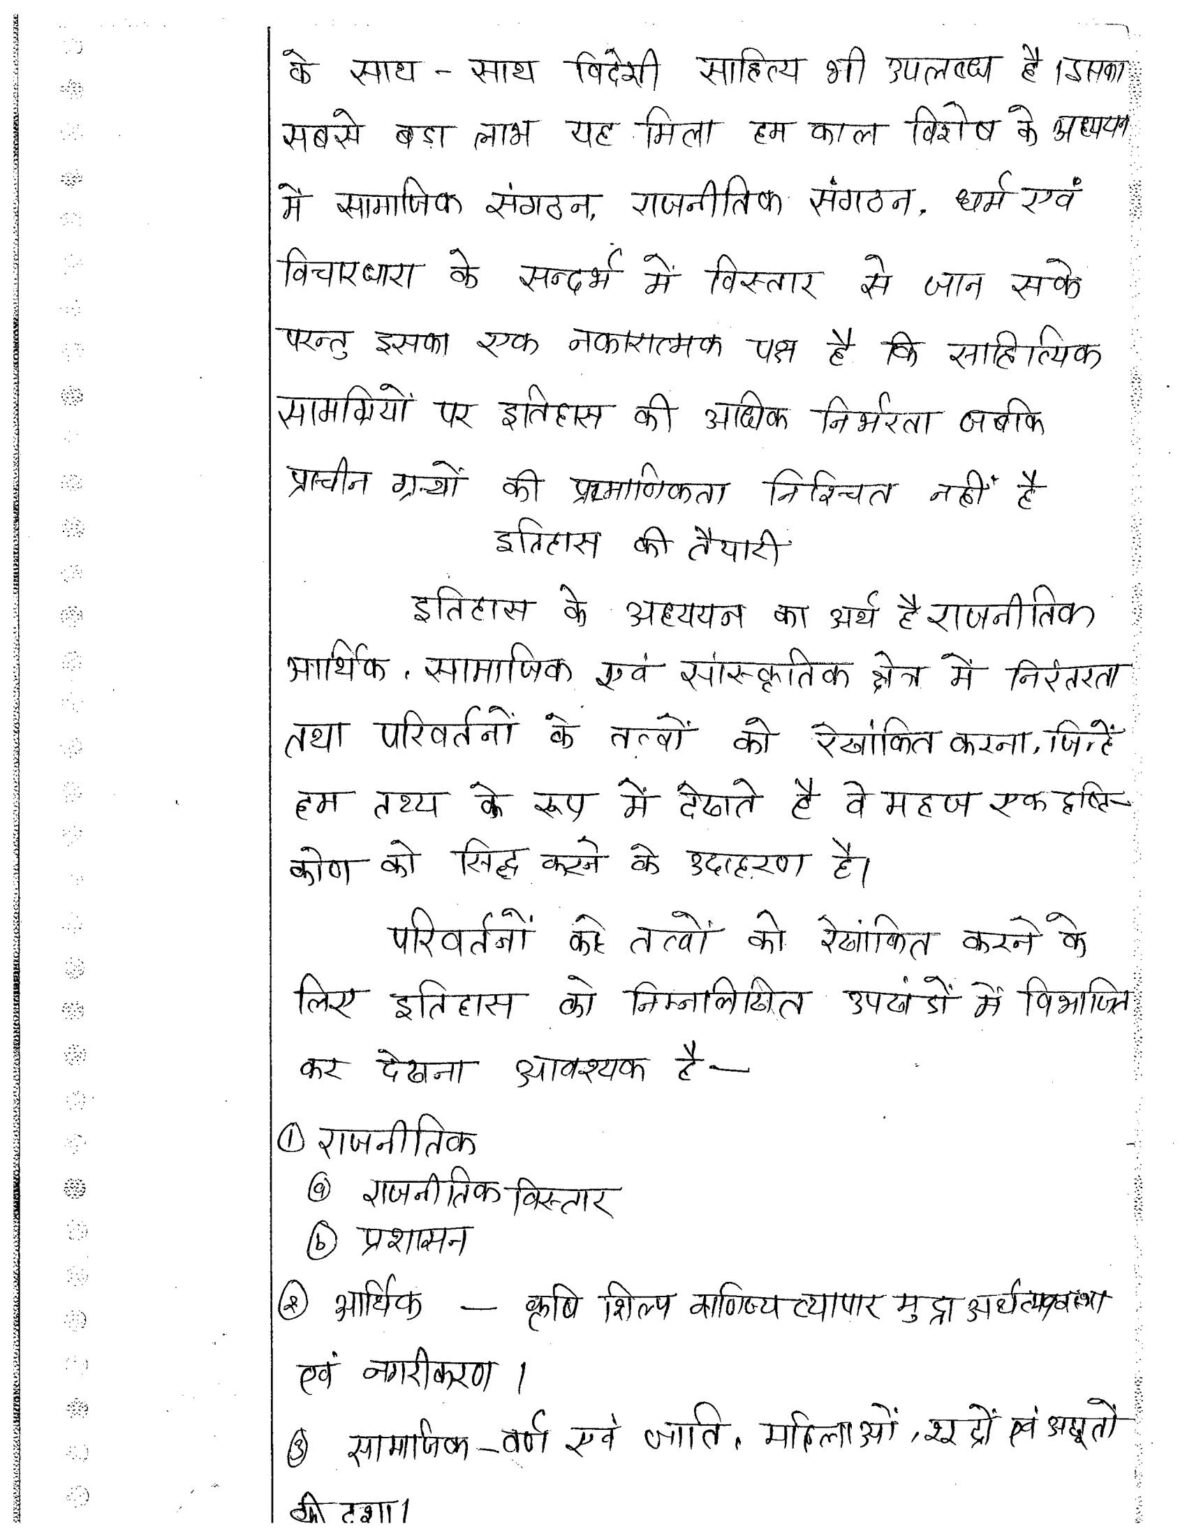 के साथ - साथ विदेशी साहित्य भी उपलब्ध है । इसका
सबसे बड़ा लाभ यह मिला हम काल विशेष के अध्ययन
में सामाजिक संगठन, राजनीतिक संगठन, धर्म एवं
विचारधारा के सन्दर्भ में विस्तार से जान सके
परन्तु इसका एक नकारात्मक पक्ष है कि साहित्यिक
सामग्रियों पर इतिहास की अधिक निर्भरता जबकि
प्राचीन ग्रन्थों की प्रामाणिकता निश्चित नहीं है
इतिहास की तैयारी
इतिहास के अध्ययन का अर्थ है राजनीतिक
आर्थिक, सामाजिक एवं सांस्कृतिक क्षेत्र में निरंतरता
तथा परिवर्तनों के तत्वों को रेखांकित करना, जिन्हें
हम तथ्य के रूप में देखते है वे महज एक दृष्टि-
कोण को सिद्ध करने के उदाहरण है।
परिवर्तनों के तत्वों को रेखांकित करने के
लिए इतिहास को निम्नलिखित उपखंडों में विभाजित
कर देखना आवश्यक है —
① राजनीतिक
ⓐ राजनीतिक विस्तार
ⓑ प्रशासन
② आर्थिक — कृषि शिल्प वाणिज्य व्यापार मुद्रा अर्थव्यवस्था
एवं नगरीकरण ।
③ सामाजिक - वर्ण एवं जाति, महिलाओं, शूद्रों एवं अछूतों
की दशा।